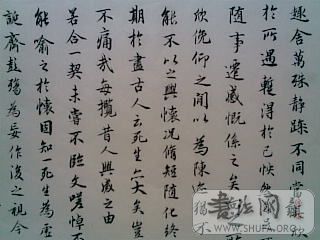 趣舍萬殊静躁不同當其欣
於所遇暫得於己怏然
隨事遷感慨係之矣
欣俛仰之間以為陳迹猶不
能不以之興懷況脩短隨化終
期於盡古人云死生亦大矣豈
不痛哉每攬昔人興感之由
若合一契未嘗不臨文嗟悼不
能喻之於懷固知一死生為虛
誕齊彭殤為妄作後之視今
書法網
WWW.SHUFA.ORG